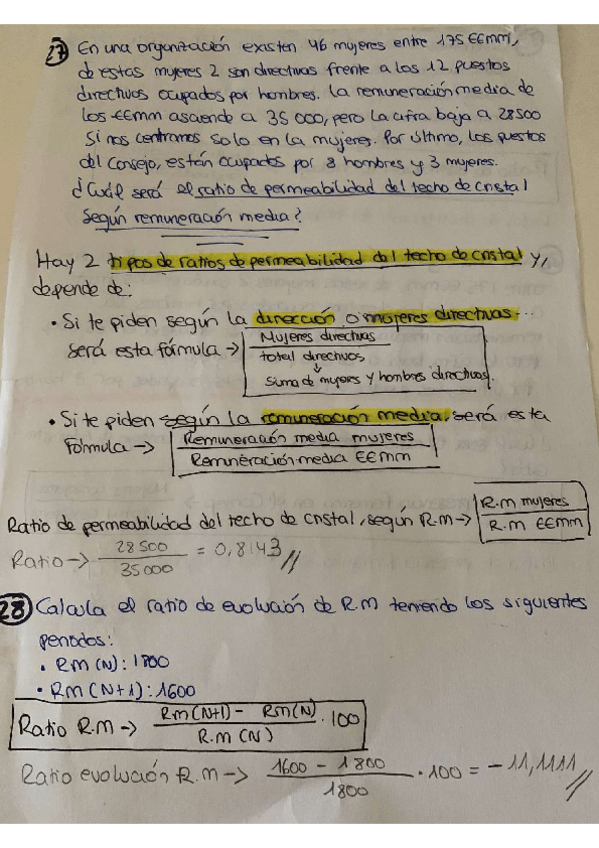 27 En una organización existen 46 mujeres entre 175 EEmm,
de estas mujeres 2 son directivas frente a los 12 puestos
directivos ocupados por hombres. La remuneración media de
los EEmm asciende a 35 000, pero la cifra baja a 28500
si nos centramos solo en la mujeres. Por último, los puestos
del Consejo, están ocupados por 8 hombres y 3 mujeres.
¿Cuál será el ratio de permeabilidad del techo de cristal
según remuneración media?
Hay 2 tipos de ratios de permeabilidad del techo de cristal y,
depende de:
• Si te piden según la dirección o mujeres directivas...
será esta fórmula → Mujeres directivas
total directivos
↓
suma de mujeres y hombres directivos
• Si te piden según la remuneración media, será esta
fórmula → Remuneración media mujeres
Remuneración media EEmm
Ratio de permeabilidad del techo de cristal, según R.M → R.M mujeres
R.m EEmm
Ratio → 28500
35000 = 0,8143 //
28 Calcula el ratio de evolución de R.M teniendo los siguientes
periodos:
• Rm (N): 1800
• Rm (N+1): 1600
Ratio R.M → Rm(N+1) - Rm(N) · 100
R.m (N)
Ratio evolución R.m → 1600 - 1800 · 100 = -11,1111 //
1800